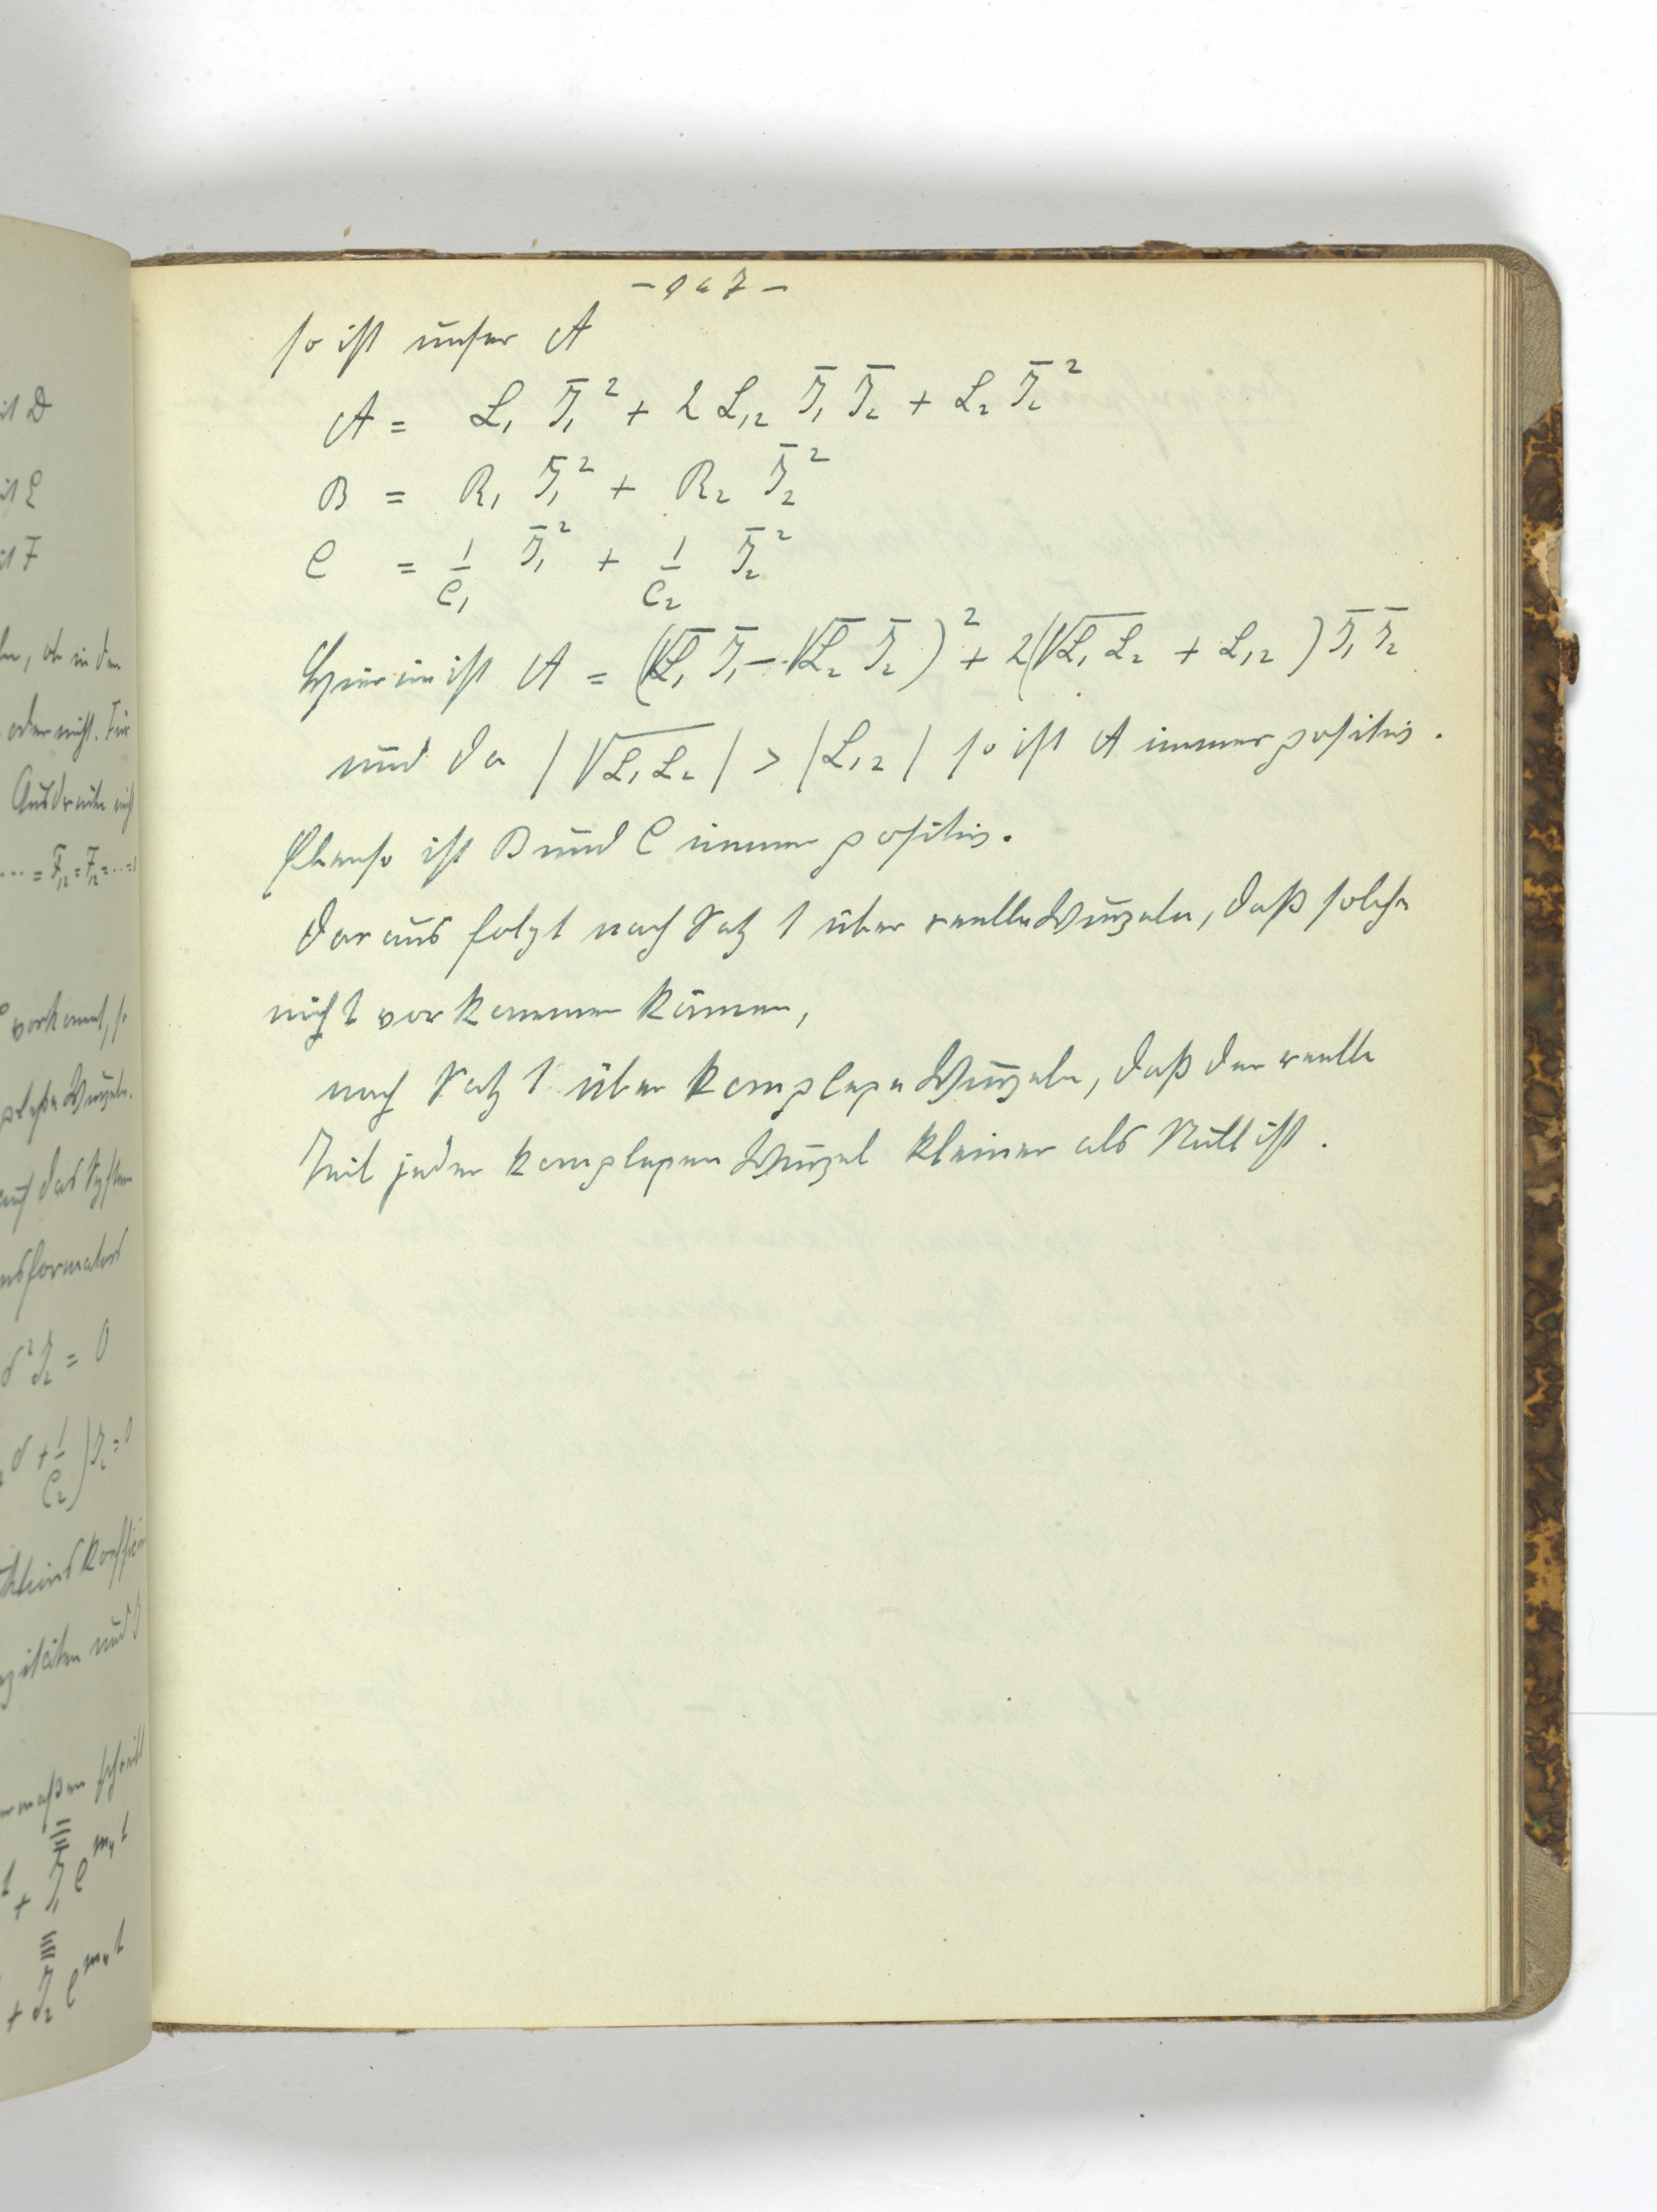 - 147 -
so ist unser A
A = L₁ J̄₁² + 2 L₁₂ J̄₁ J̄₂ + L₂ J̄₂²
B = R₁ J̄₁² + R₂ J̄₂²
C = 1/C₁ J̄₁² + 1/C₂ J̄₂²
Hierin ist A = (√L₁ J̄₁ - √L₂ J̄₂)² + 2(√L₁ L₂ + L₁₂) J̄₁ J̄₂
und da |√L₁ L₂| > |L₁₂| so ist A immer positiv.
Ebenso ist B und C immer positiv.
Daraus folgt nach Satz 1 über reelle Wurzeln, daß solche
nicht vorkommen können,
nach Satz 1 über komplexe Wurzeln, daß der reelle
Teil jeder komplexen Wurzel kleiner als Null ist.
it D
it E
it F
ob in den
oder nicht. Für
Ausdrücke nicht
... = F₁₂ = F₁₂ = ...
vorkommt, so
Wurzeln.
auf das System
δ² J₂ = 0
δ + 1/C₂) J₂ = 0
und
schreibt
+ J₁ e^m₄t
+ J₂ e^m₄t